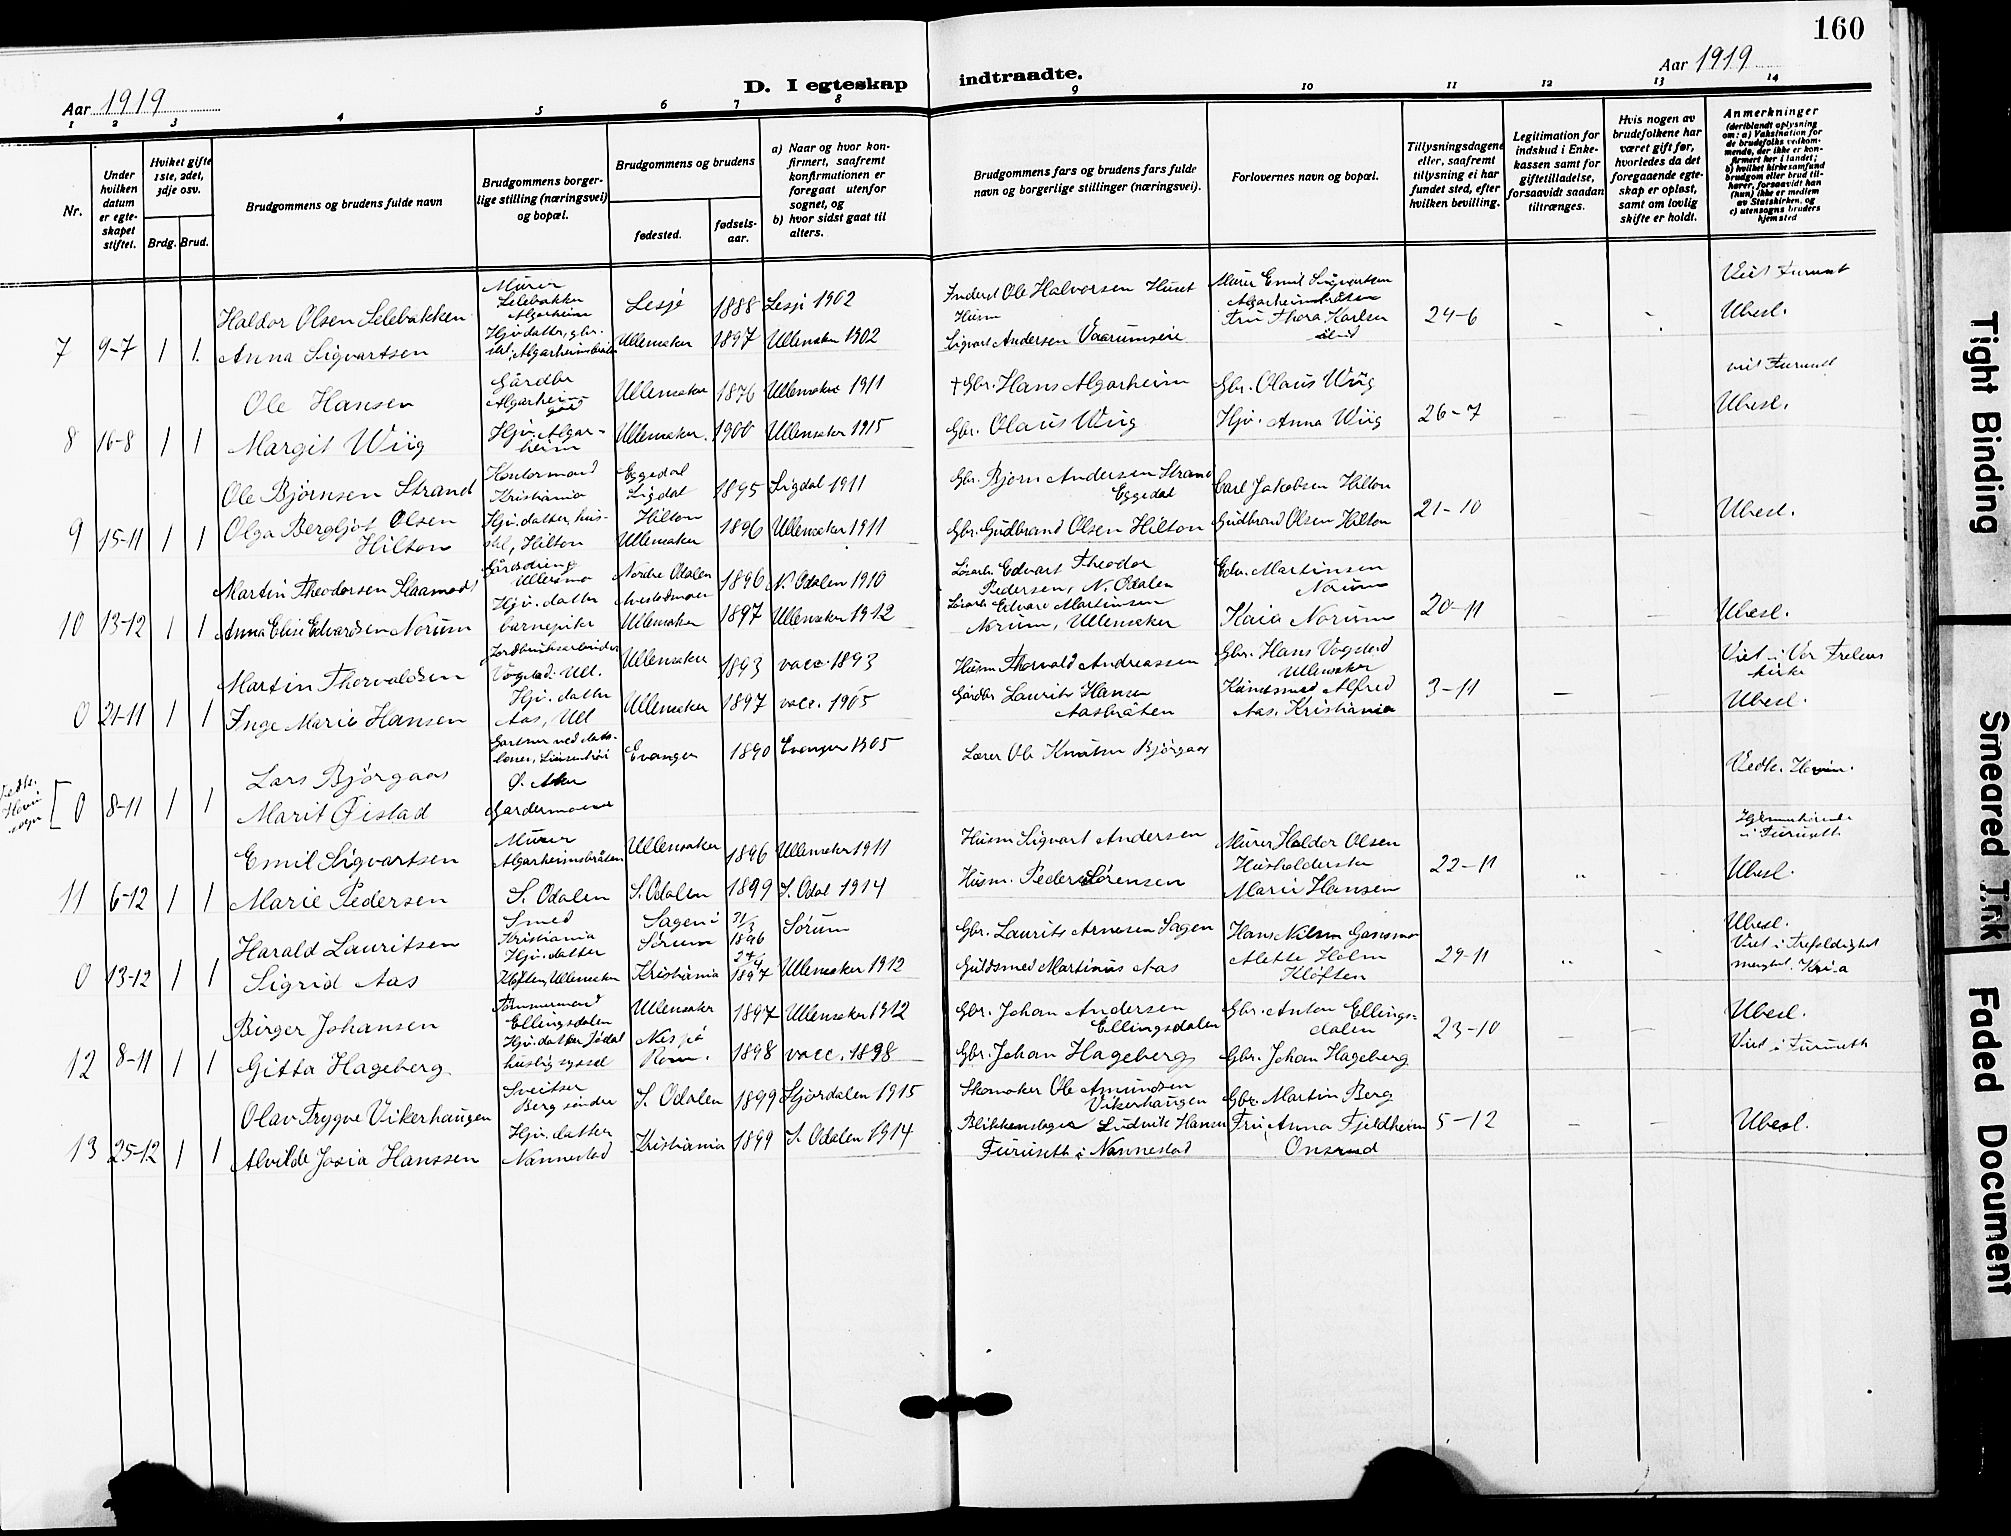 160
Aar 1919
D. I egteskap indtraadte.
Aar 1919
1 2 3 4 5 6 7 8 9 10 11 12 13 14
Nr.
Under hvilken datum er egteskapet stiftet.
Hvilket gifte 1ste, 2det, 3dje osv.
Brdg. Brud.
Brudgommens og brudens fulde navn
Brudgommens borgerlige stilling (næringsvei) og bopæl.
Brudgommens og brudens
fødested.
fødsels-aar.
a) Naar og hvor konfirmert, saafremt konfirmationen er foregaat utenfor sognet, og
b) hvor sidst gaat til alters.
Brudgommens fars og brudens fars fulde navn og borgerlige stillinger (næringsvei).
Forlovernes navn og bopæl.
Tillysningsdagene eller, saafremt tillysning ei har fundet sted, efter hvilken bevilling.
Legitimation for indskud i Enkekassen samt for giftetilladelse, forsaavidt saadan tiltrænges.
Hvis nogen av brudefolkene har været gift før, hvorledes da det foregaaende egteskap er opløst, samt om lovlig skifte er holdt.
Anmerkninger
(deriblandt oplysning om: a) Vaksination for de brudefolks vedkommende, der ikke er konfirmert her i landet; b) hvilket kirkesamfund brudgom eller brud tilhører, forsaavidt han (hun) ikke er medlem av Statskirken, og c) utensogns bruders hjemsted
Haldor Olsen Selebakken Murer Selebakken Algarheim Lesje 1888 Lesje 1902 Inderst Ole Halvorsen Huset Murer Emil Sigvartsen Algarheimsbråten Viet Furuset
7 4-7 1 1. Anna Sigvartsen Hjv. datter, Algarheimsbråten Ullensaker 1897 Ullensaker 1902 Husm Sigvart Andersen Vaarumseie Fru Thora Karlsen 24-6 Ubesl.
Ole Hansen Gårdbr Algarheim Ullensaker 1876 Ullensaker 1911 + Gbr. Hans Algarheim Gbr. Olaus Wiig viet Furuset
8 16-8 1 1 Margit Wiig Hjv. Algarheim Ullensaker. 1900 Ullensaker 1915 Gbr. Olaus Wiig Hjv. Anna Wiig 26-7 Ubesl.
Ole Bjørnsen Strand Kontormand Kristiania Eggedal Sigdal 1895 Sigdal 1911 Gbr. Bjørn Andersen Strand Eggedal Carl Jakobsen Hilton
9 15-11 1 1 Olga Bergljot Olsen Hilton Hjv. datter, Hilton Hilton Ullensaker 1896 Ullensaker 1911 Gbr. Gudbrand Olsen Hilton Gudbrand Olsen Hilton 21-10 Ubesl.
Martin Theodorsen Gårdsdreng Nordre Odalen 1896 N. Odalen 1910 Løsarb. Edvart Theodor Pedersen, N. Odalen Edv. Martinsen Norum
10 13-12 1 1 Anna Elise Edvardsen Norum Hjv. datter barnepike Ullensaker 1897 Ullensaker 1912 Løsarb. Edvard Martinsen Norum, Ullensaker Kaia Norum 20-11 Ubesl.
Martin Thorvaldsen Jordbruksarbeider Vogstad. Ull. Ullensaker 1893 vacc. 1893 Husm Thorvald Andreassen Gbr. Hans Vogsted Ullensaker Viet i Vor Frelsers kirke
0 21-11 1 1 Inge Marie Hansen Hjv. datter Aas, Ull Ullensaker 1897 vacc. 1905 Gårdbr Laurits Hansen Aasbråten Kunstsmed Alfred Aas, Kristiania 3-11 Ubesl.
Lars Bjørgaas Gartner Ø. Aker Evanger 1890 Evanger 1905 Lærer Ole Knutsen Bjørgaas Vedk. Hovin.
0 8-11 1 1 Marit Øistad Gardermoen
Emil Sigvartsen Murer Algarheimsbråten Ullensaker 1896 Ullensaker 1911 Husm Sigvart Andersen Murer Haldor Olsen i Furuseth
11 6-12 1 1 Marie Pedersen S. Odalen S. Odalen 1899 S. Odal 1914 Husm. Peder Sørensen Husholderske Marie Hansen 22-11 Ubesl.
Harald Lauritsen Smed Kristiania Sagen i Sørum 31/3 1896 Sørum Gbr. Laurits Arnesen Sagen Hans Nilsen Ubesl. Viet i Trefoldighet
0 13-12 1 1 Sigrid Aas Hjv. datter Kløften, Ullensaker Kristiania 24/4 1897 Ullensaker 1912 Guldsmed Martinius Aas Alette Holm Kløften 29-11 menghet. Kr.a
Birger Johansen Tømmermand Ellingsdalen Ullensaker 1897 Ullensaker 1912 Gbr. Johan Andersen Ellingsdalen Gbr. Anton Ellingsdalen Ubesl.
12 8-11 1 1 Gitta Hageberg Hjv. datter Jødal huslig syssel Nes på Rom. 1898 vacc. 1898 Gbr. Johan Hageberg Gbr. Johan Hageberg 23-10 Viet i Furuseth
Olav Trygve Vikerhaugen Sveitser Berg søndre S. Odalen 1899 Stjørdalen 1915 Skomaker Ole Amundsen Vikerhaugen Gbr. Martin Berg
13 25-12 1 1 Alvilde Josia Hanssen Hjv. datter Nannestad Kristiania 1899 S. Odalen 1914 Blikkenslager Ludvik Hansen Furuseth i Nannestad Fru Anna Fjeldheim Onsrud 5-12 Ubesl.
Tight Binding
Smeared Ink
Faded Document